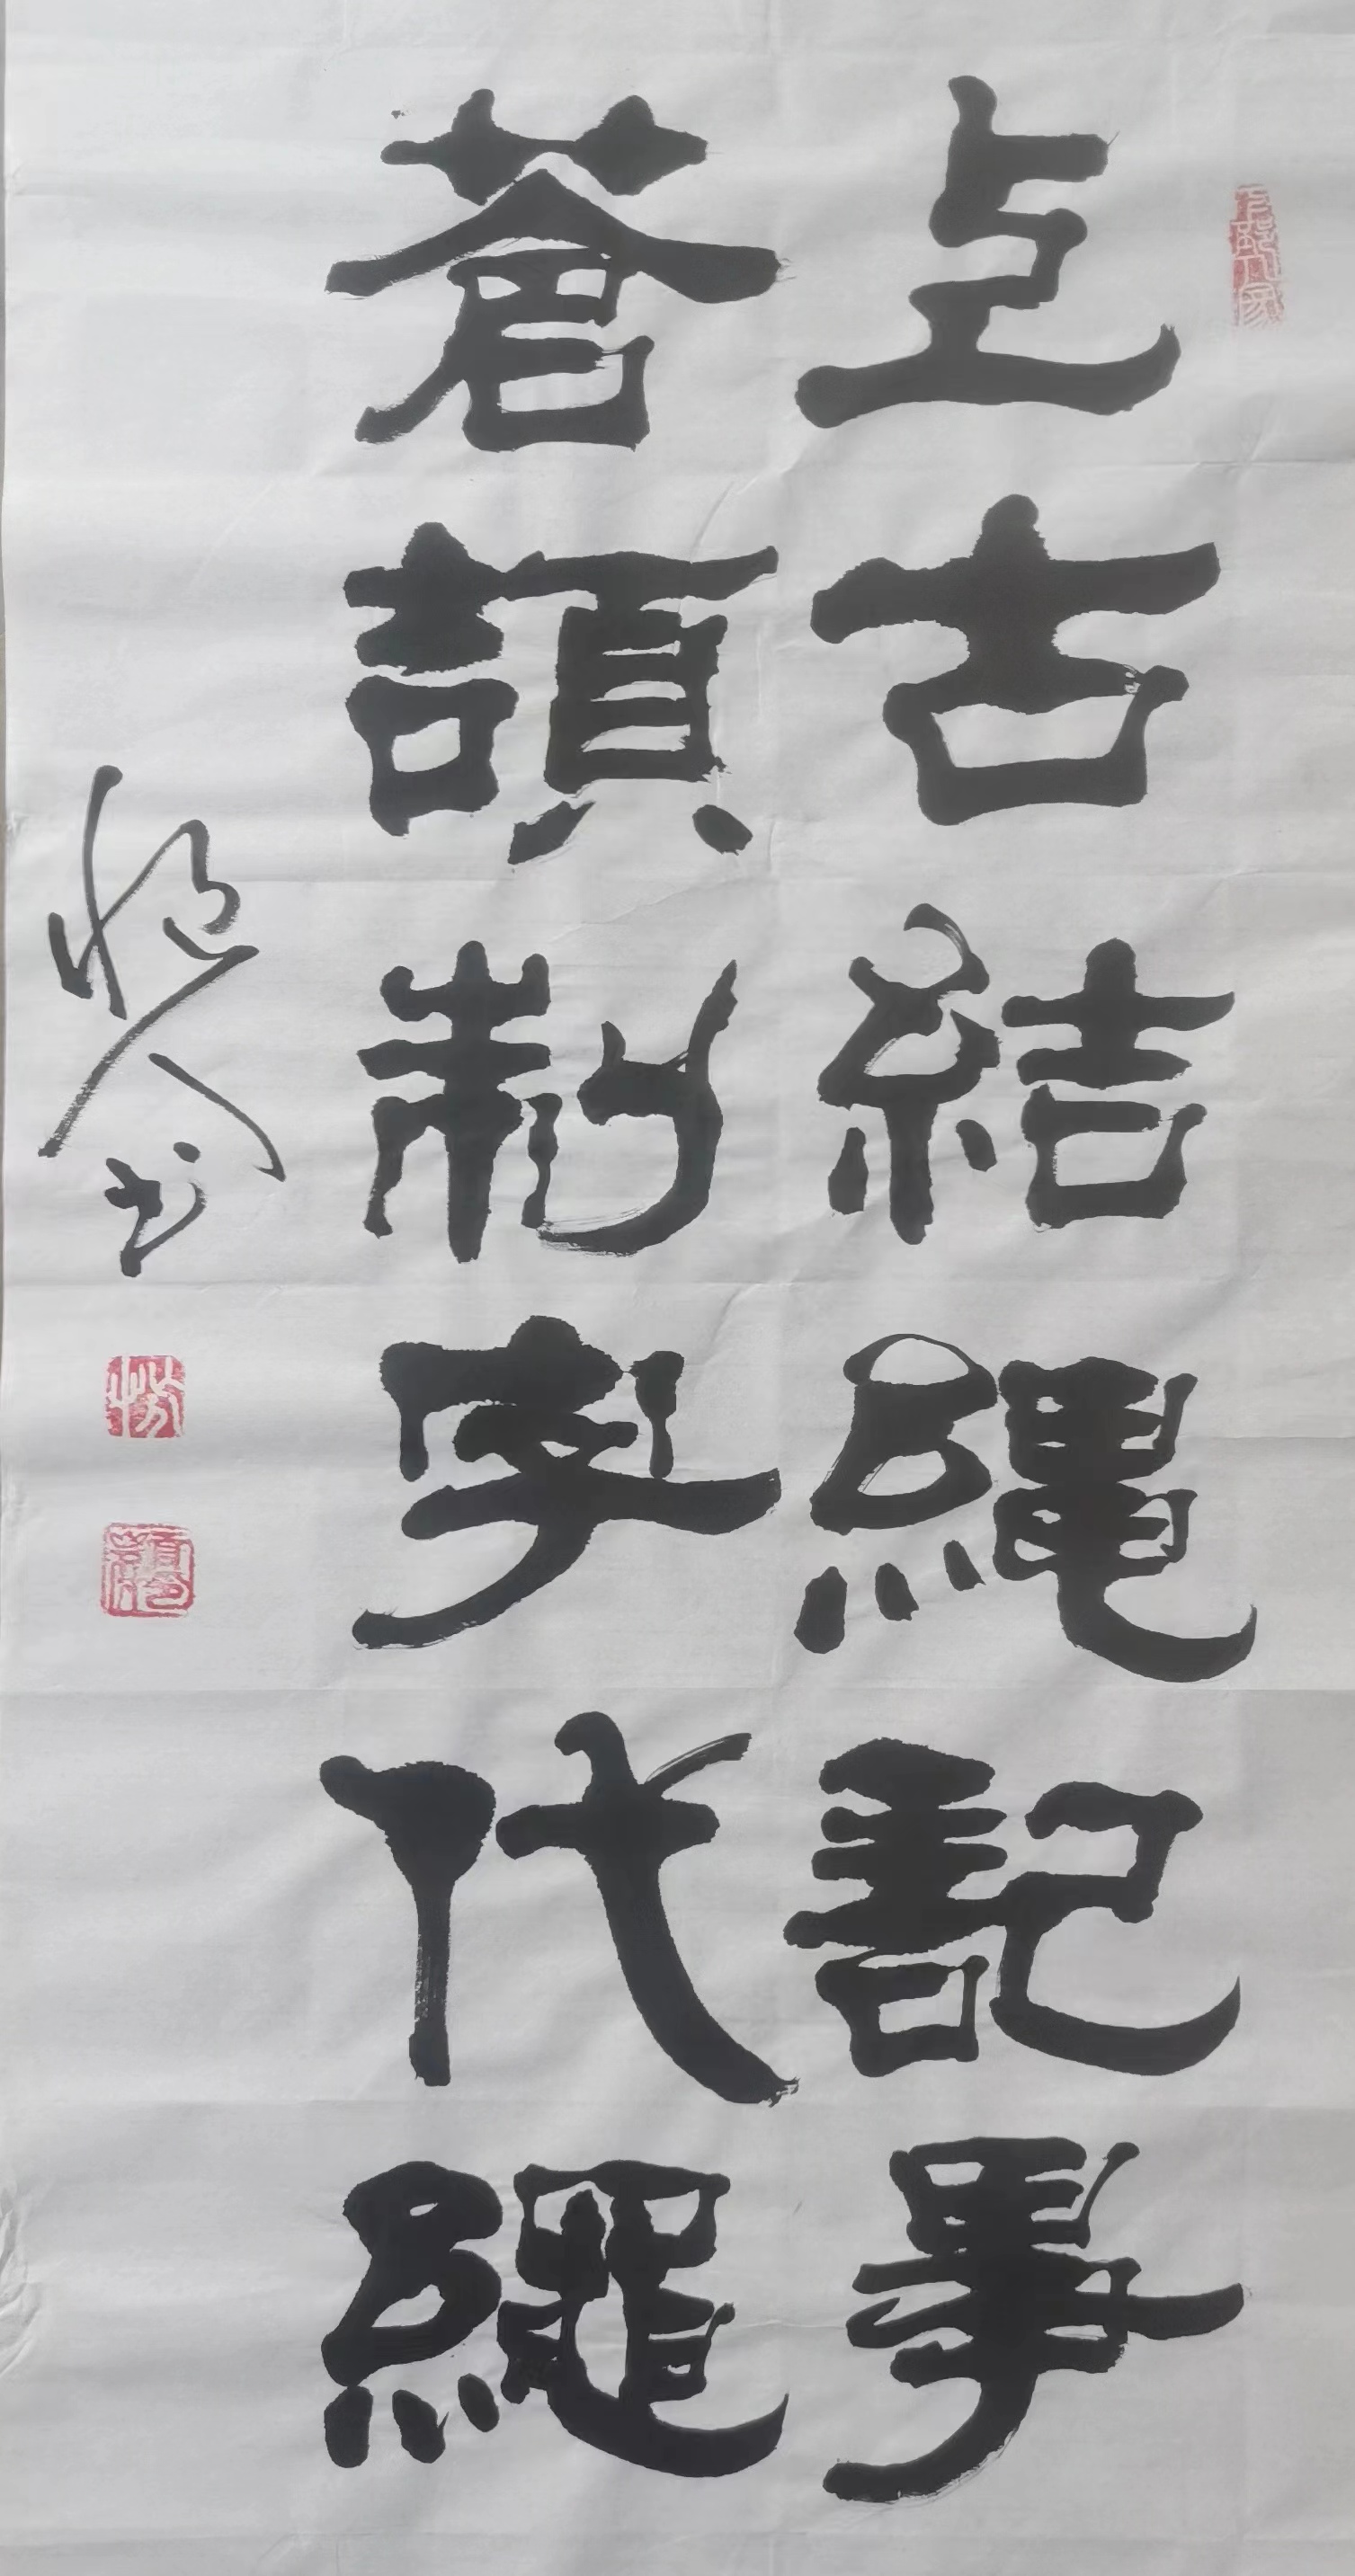 上古結繩記事
蒼頡制字代繩
書